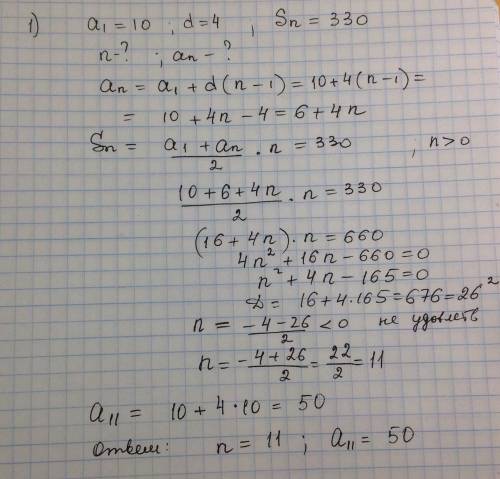 1) a₁ = 10 ; d = 4 , Sₙ = 330
n - ? ; aₙ - ?
aₙ = a₁ + d (n - 1) = 10 + 4 (n - 1) =
= 10 + 4n - 4 = 6 + 4n
Sₙ = (a₁ + aₙ)/2 · n = 330 ; n > 0
(10 + 6 + 4n)/2 · n = 330
(16 + 4n) · n = 660
4n² + 16n - 660 = 0
n² + 4n - 165 = 0
D = 16 + 4 · 165 = 676 = 26²
n = (-4 - 26)/2 < 0 не удовлетв
n = (-4 + 26)/2 = 22/2 = 11
a₁₁ = 10 + 4 · 10 = 50
Ответ: n = 11 ; a₁₁ = 50